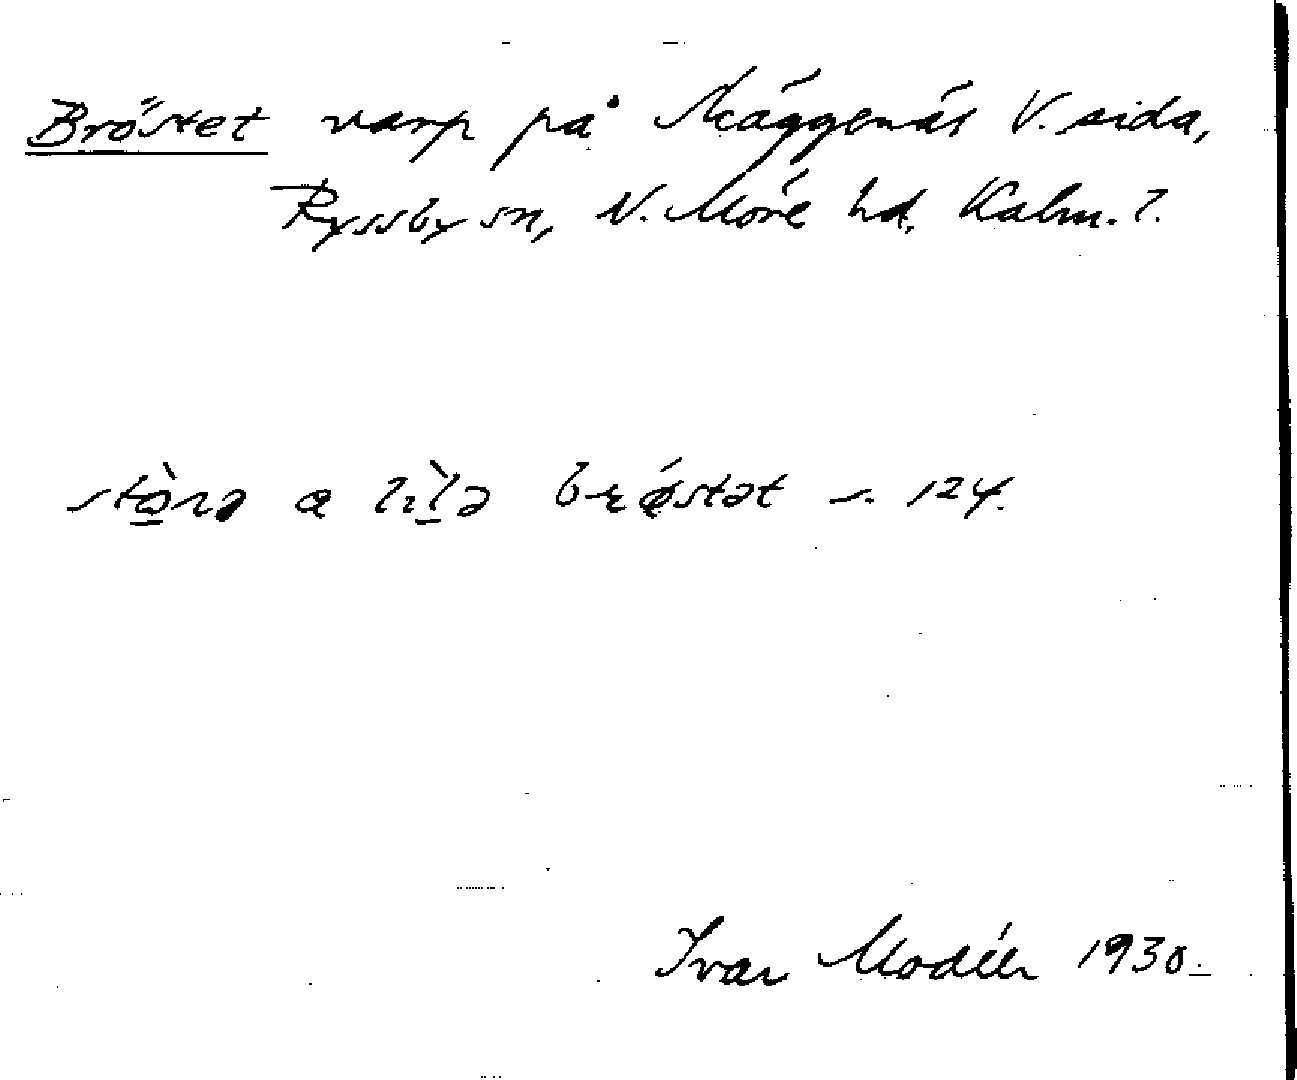 Bröstet varp på Skäggenäs V. sida,
Ryssby sn, N. Möre hd. Kalm. l.
stɷ̀ra æ lìla brǿstət s. 124.
Ivar Modéer 1930.